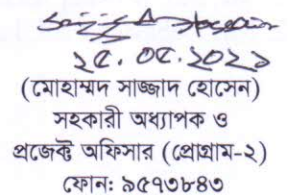 ২৫.০৫.২০২১
(মোহাম্মদ সাজ্জাদ হোসেন)
সহকারী অধ্যাপক ও
প্রজেক্ট অফিসার (প্রোগ্রাম-২)
ফোন: ৯৫৭৩৮৪৩